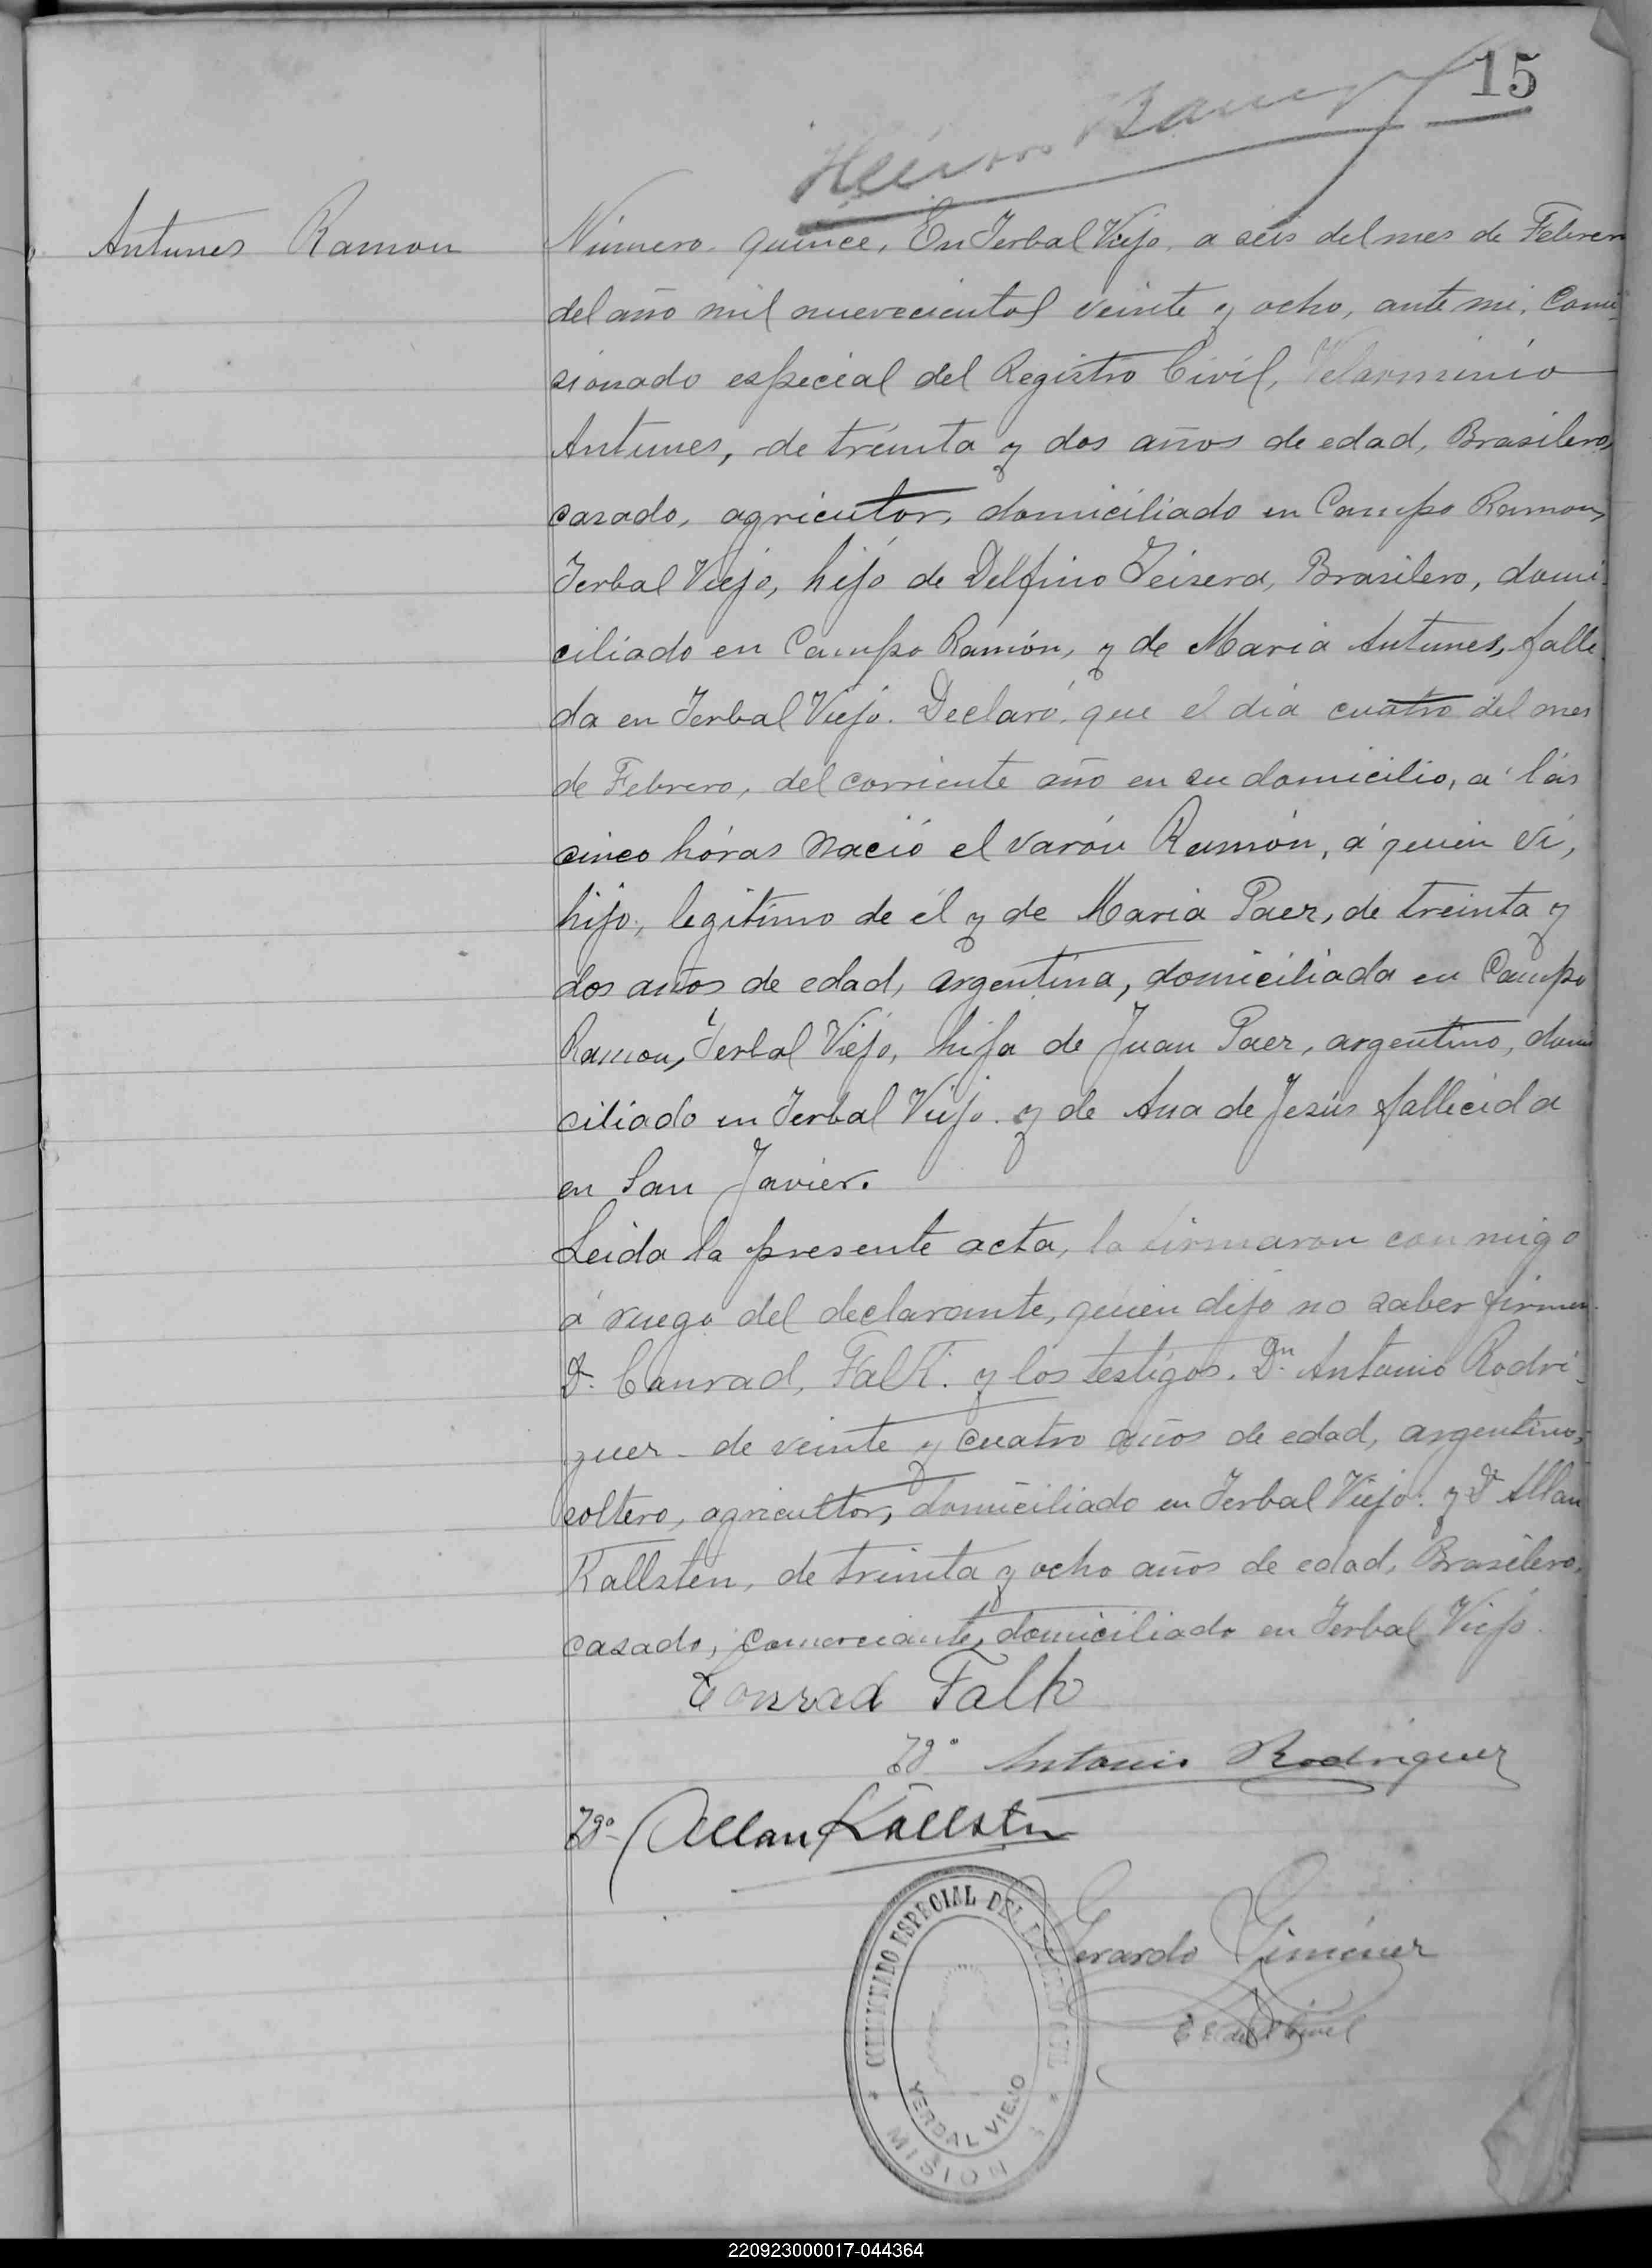 15
Antunes Ramon
Número quince, En Jerbal Viejo, a seis del mes de Febrero
del año mil nuevecientos veinte y ocho, ante mi, Comi-
sionado especial del Registro Civil, Velarminio
Antunes, de treinta y dos años de edad, Brasilero,
casado, agricutor, domiciliado en Campo Ramon,
Jerbal Viejo, hijo de Delfino Teisera, Brasilero, domi-
ciliado en Campo Ramón, y de Maria Antunes, falle
da en Jerbal Viejo. Declaró, que el dia cuatro del mes
de Febrero, del corriente año en su domicilio, a' las
cinco hóras nació el varón Ramón, a' quien vi,
hijo, legitimo de él y de Maria Paez, de treinta y
dos años de edad, argentina, domiciliada en Campo
Ramon, Jerbal Viejo, hija de Juan Paez, argentino, domi
ciliado en Jerbal Viejo. y de Ana de Jesús fallecida
en San Javier.
Leida la presente acta, la firmaron con migo
a' ruego del declarante, quien dijo no saber firmar
D. Conrad, Falk. y los testigos. Dn Antonio Rodri-
guez - de veinte y cuatro años de edad, argentino,
soltero, agricultor, domiciliado en Jerbal Viejo. y D. Allan
Kallsten, de treinta y ocho años de edad, Brasilero,
casado, comerciante, domiciliado en Jerbal Viejo.
Conrad Falk
Tgo Antonio Rodriguez
Tgo Allan Källsten
Gerardo Giménez
COMISIONADO ESPECIAL DEL REGISTRO CIVIL
YERBAL VIEJO
MISION
220923000017-044364